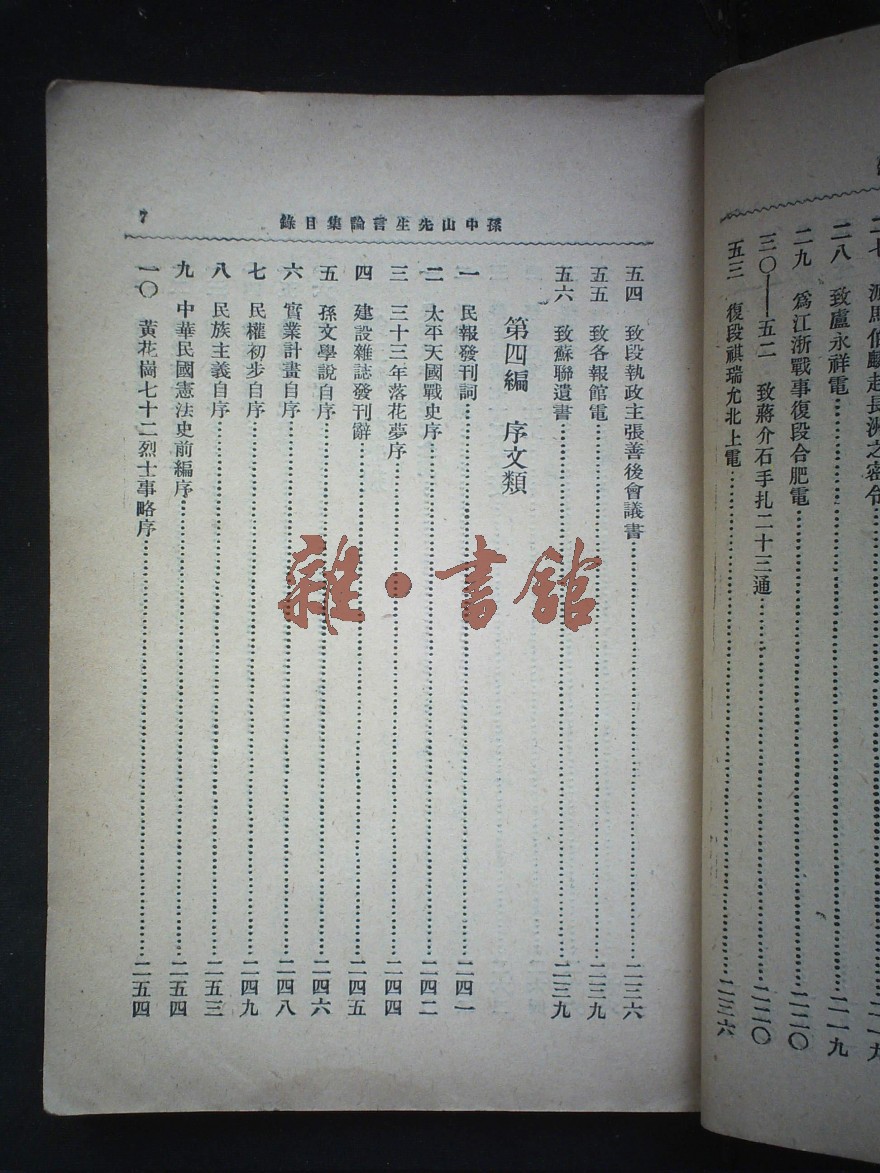 二七 派馬伯麟赴長洲之密令……二一九
二八 致盧永祥電……二一九
二九 爲江浙戰事復段合肥電……二二〇
三〇——五二 致蔣介石手扎二十三通……二二〇
五三 復段祺瑞允北上電……二三六
孫中山先生言論集目錄
7
五四 致段執政主張善後會議書……二三六
五五 致各報館電……二三九
五六 致蘇聯遺書……二三九
第四編 序文類
一 民報發刊詞……二四一
二 太平天國戰史序……二四二
三 三十三年落花夢序……二四四
四 建設雜誌發刊辭……二四五
五 孫文學說自序……二四六
六 實業計畫自序……二四八
七 民權初步自序……二四九
八 民族主義自序……二五三
九 中華民國憲法史前編序……二五四
一〇 黃花崗七十二烈士事略序……二五四
雜·書館